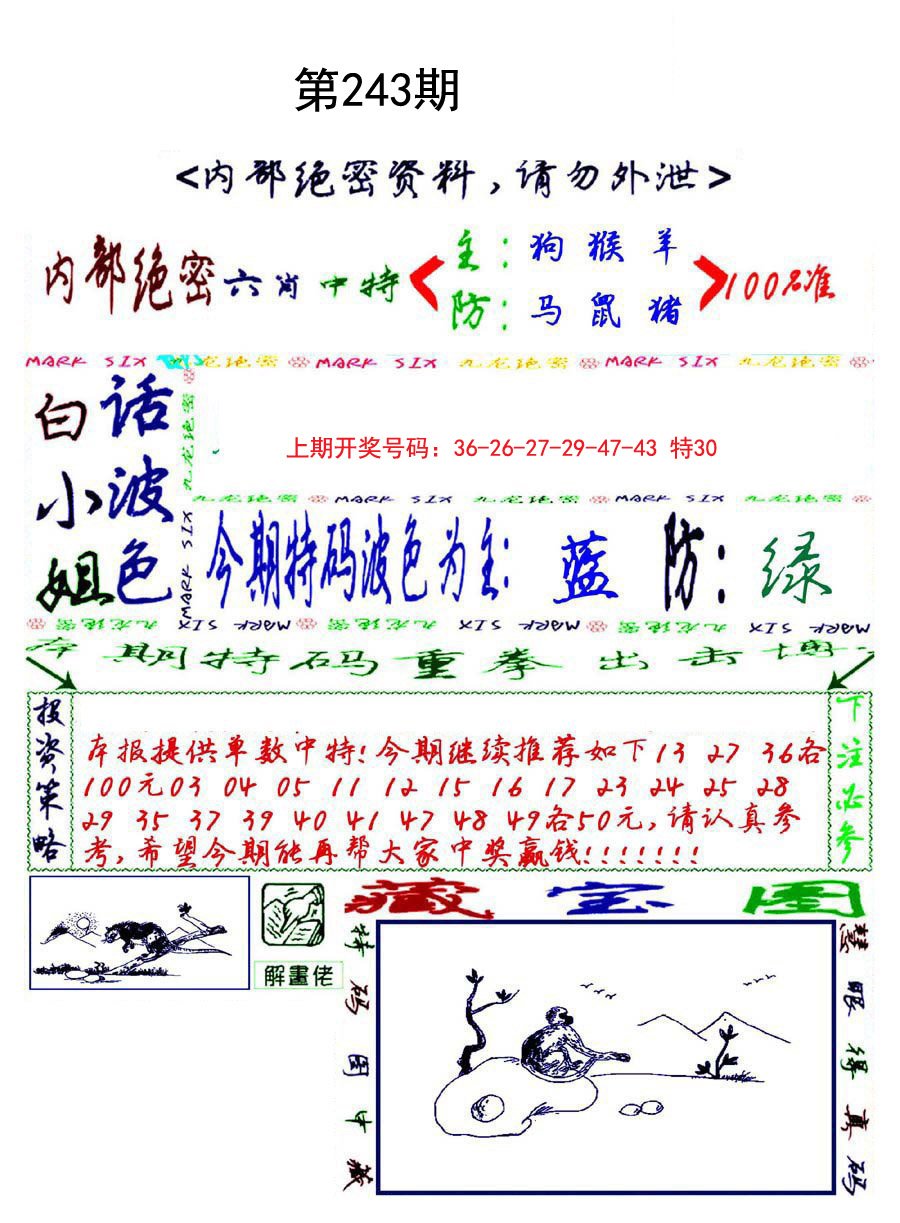 第243期
<内部绝密资料,请勿外泄>
内部绝密六肖中特
主:狗猴羊
防:马鼠猪
100%准
MARK SIX 九龙绝密 MARK SIX 九龙绝密 MARK SIX 九龙绝密
白话
小波
姐色
九龙绝密
MARK SIX
上期开奖号码：36-26-27-29-47-43 特30
九龙绝密 MARK SIX 九龙绝密 MARK SIX 九龙绝密
今期特码波色为主: 蓝 防: 绿
九龙绝密 MARK SIX 九龙绝密 MARK SIX 九龙绝密 MARK SIX
本期特码重拳出击博
投资策略
本报提供单数中特!今期继续推荐如下13 27 36各
100元03 04 05 11 12 15 16 17 23 24 25 28
29 35 37 39 40 41 47 48 49各50元,请认真参
考,希望今期能再帮大家中奖赢钱!!!!!!!
下注必参
解畫佬
藏宝图
特码图中藏
慧眼得真码